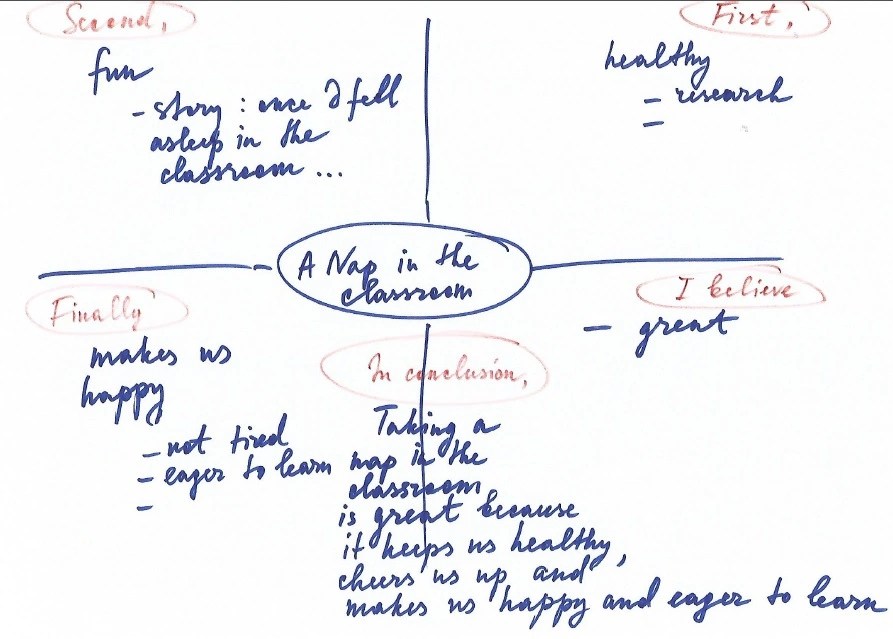 Second,
fun
- story : once I fell
asleep in the
classroom ...
First,
healthy
- research
-
A Nap in the
classroom
I believe
- great
Finally
makes us
happy
- not tired
- eager to learn
-
In conclusion,
Taking a
nap in the
classroom
is great because
it keeps us healthy,
cheers us up and
makes us happy and eager to learn